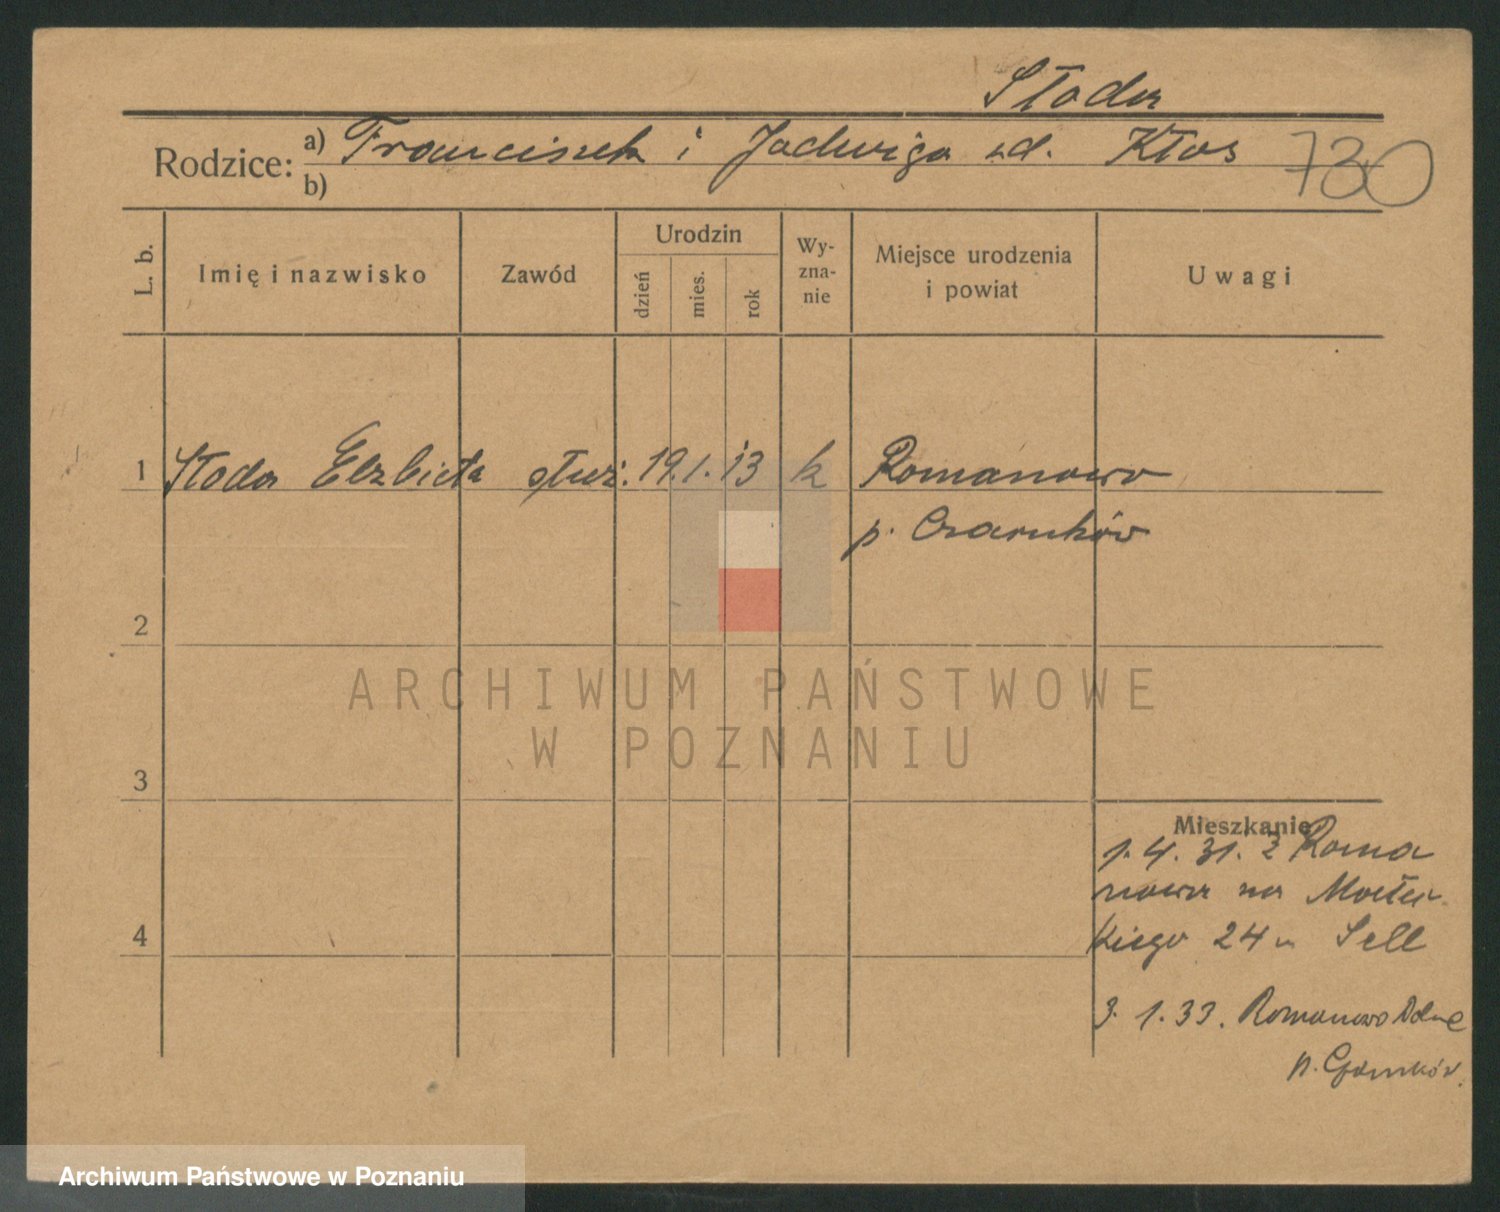 Słoda
Rodzice: a) Franciszek i Jadwiga zd. Kłos 730
b)
L. b.
Imię i nazwisko
Zawód
Urodzin
dzień
mies.
rok
Wy-
zna-
nie
Miejsce urodzenia
i powiat
Uwagi
1 Słoda Elzbieta służ. 19.1.13 k Romanowo
p. Czarnków
2
ARCHIWUM PAŃSTWOWE
W POZNANIU
3
Mieszkanie
1.4.31. z Roma
nowa na
kiego 24 Sell
4
3.1.33. Romanowo Dolne
p. Czarnków.
Archiwum Państwowe w Poznaniu